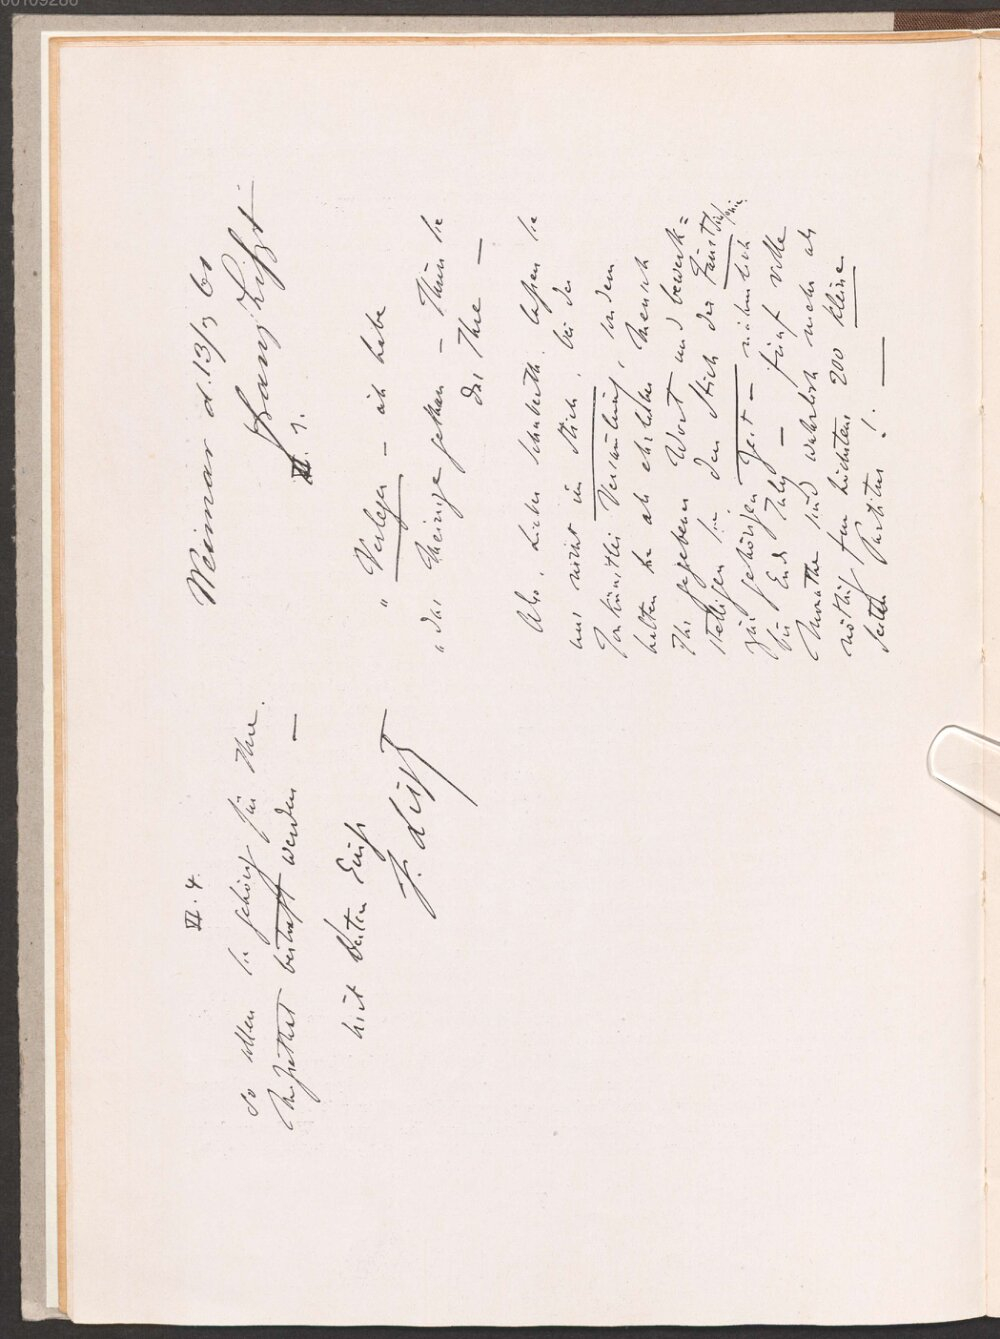 00109280
Weimar d. 13/3 61
Franz Liszt
VI. 1.
"Verleger – ich habe
"das Meinige gethan – Thun Sie
das Ihre –
Also, Lieber Schuberth, lassen Sie
mich nicht im Stich, bei der
Tonkünstler Versamlung, sondern
halten Sie als ehrlicher Mensch
Ihr gegebenes Wort und bewerk=
stelligen Sie den Stich der Faust Sinfonie
zur gehörigen Zeit – nähmlich
bis Ende July – fünf volle
Monathe sind wahrlich mehr als
nöthig für höchstens 200 kleine
Seiten Partitur! –
VI. 4.
So sollen Sie gehörig für Ihre
Missethat bestraft werden –
mit besten Grüß
F. Liszt